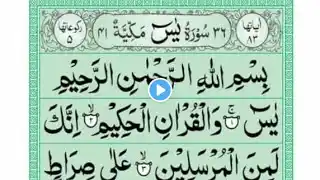 اٰیاتها ٨٣ ٣٦ سُوْرَةُ يٰسٓ مَكِّيَّةٌ ٤١ رکوعاتها ٥
بِسْمِ اللّٰهِ الرَّحْمٰنِ الرَّحِيْمِ
يٰسٓ ۚ﴿١﴾ وَالْقُرْاٰنِ الْحَكِيْمِ ۙ﴿٢﴾ اِنَّكَ
لَمِنَ الْمُرْسَلِيْنَ ۙ﴿٣﴾ عَلٰى صِرَاطٍ